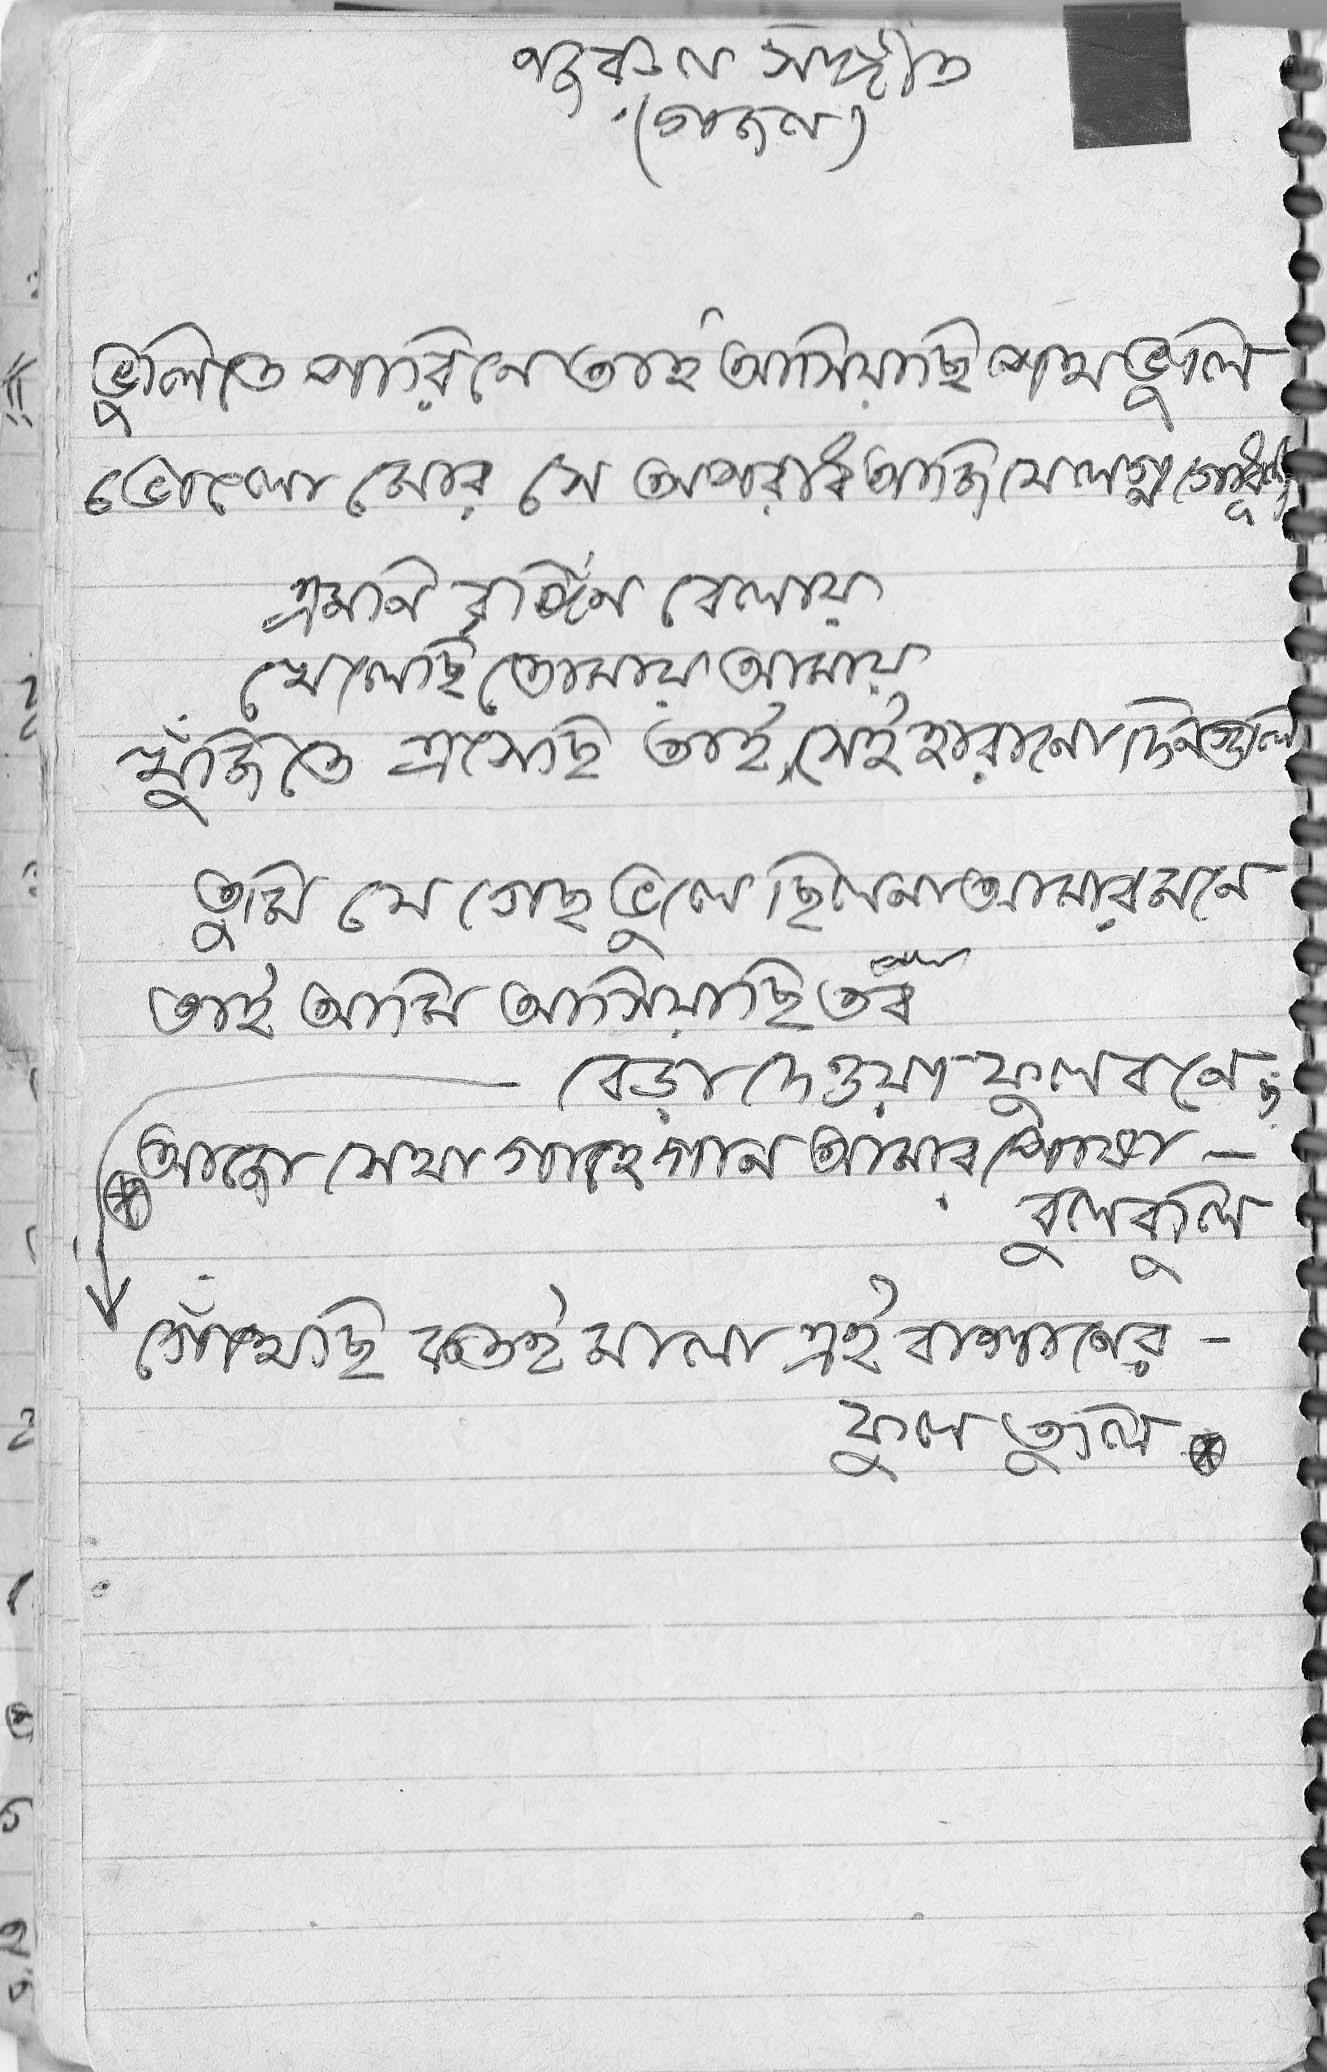 নজরুল সঙ্গীত
(গজল)
ভুলিতে পারিনে তাই আসিয়াছি পথ ভুলি
ভোলো মোর সে অপরাধ আজি যে লগ্ন গোধূলি
এমনি রঙিন বেলায়
খেলেছি তোমায় আমায়
খুঁজিতে এসেছি তাই, সেই হারানো দিনগুলি
তুমি যে গেছ ভুলে ছিলনা আমার মনে
তাই আমি আসিয়াছি তব
বেড়া দেওয়া ফুলবনে;
আজো সেথা গাহে গান আমার পোষা —
বুলবুলি
গেঁথেছি কতই মালা এই বাগানের -
ফুল তুলি